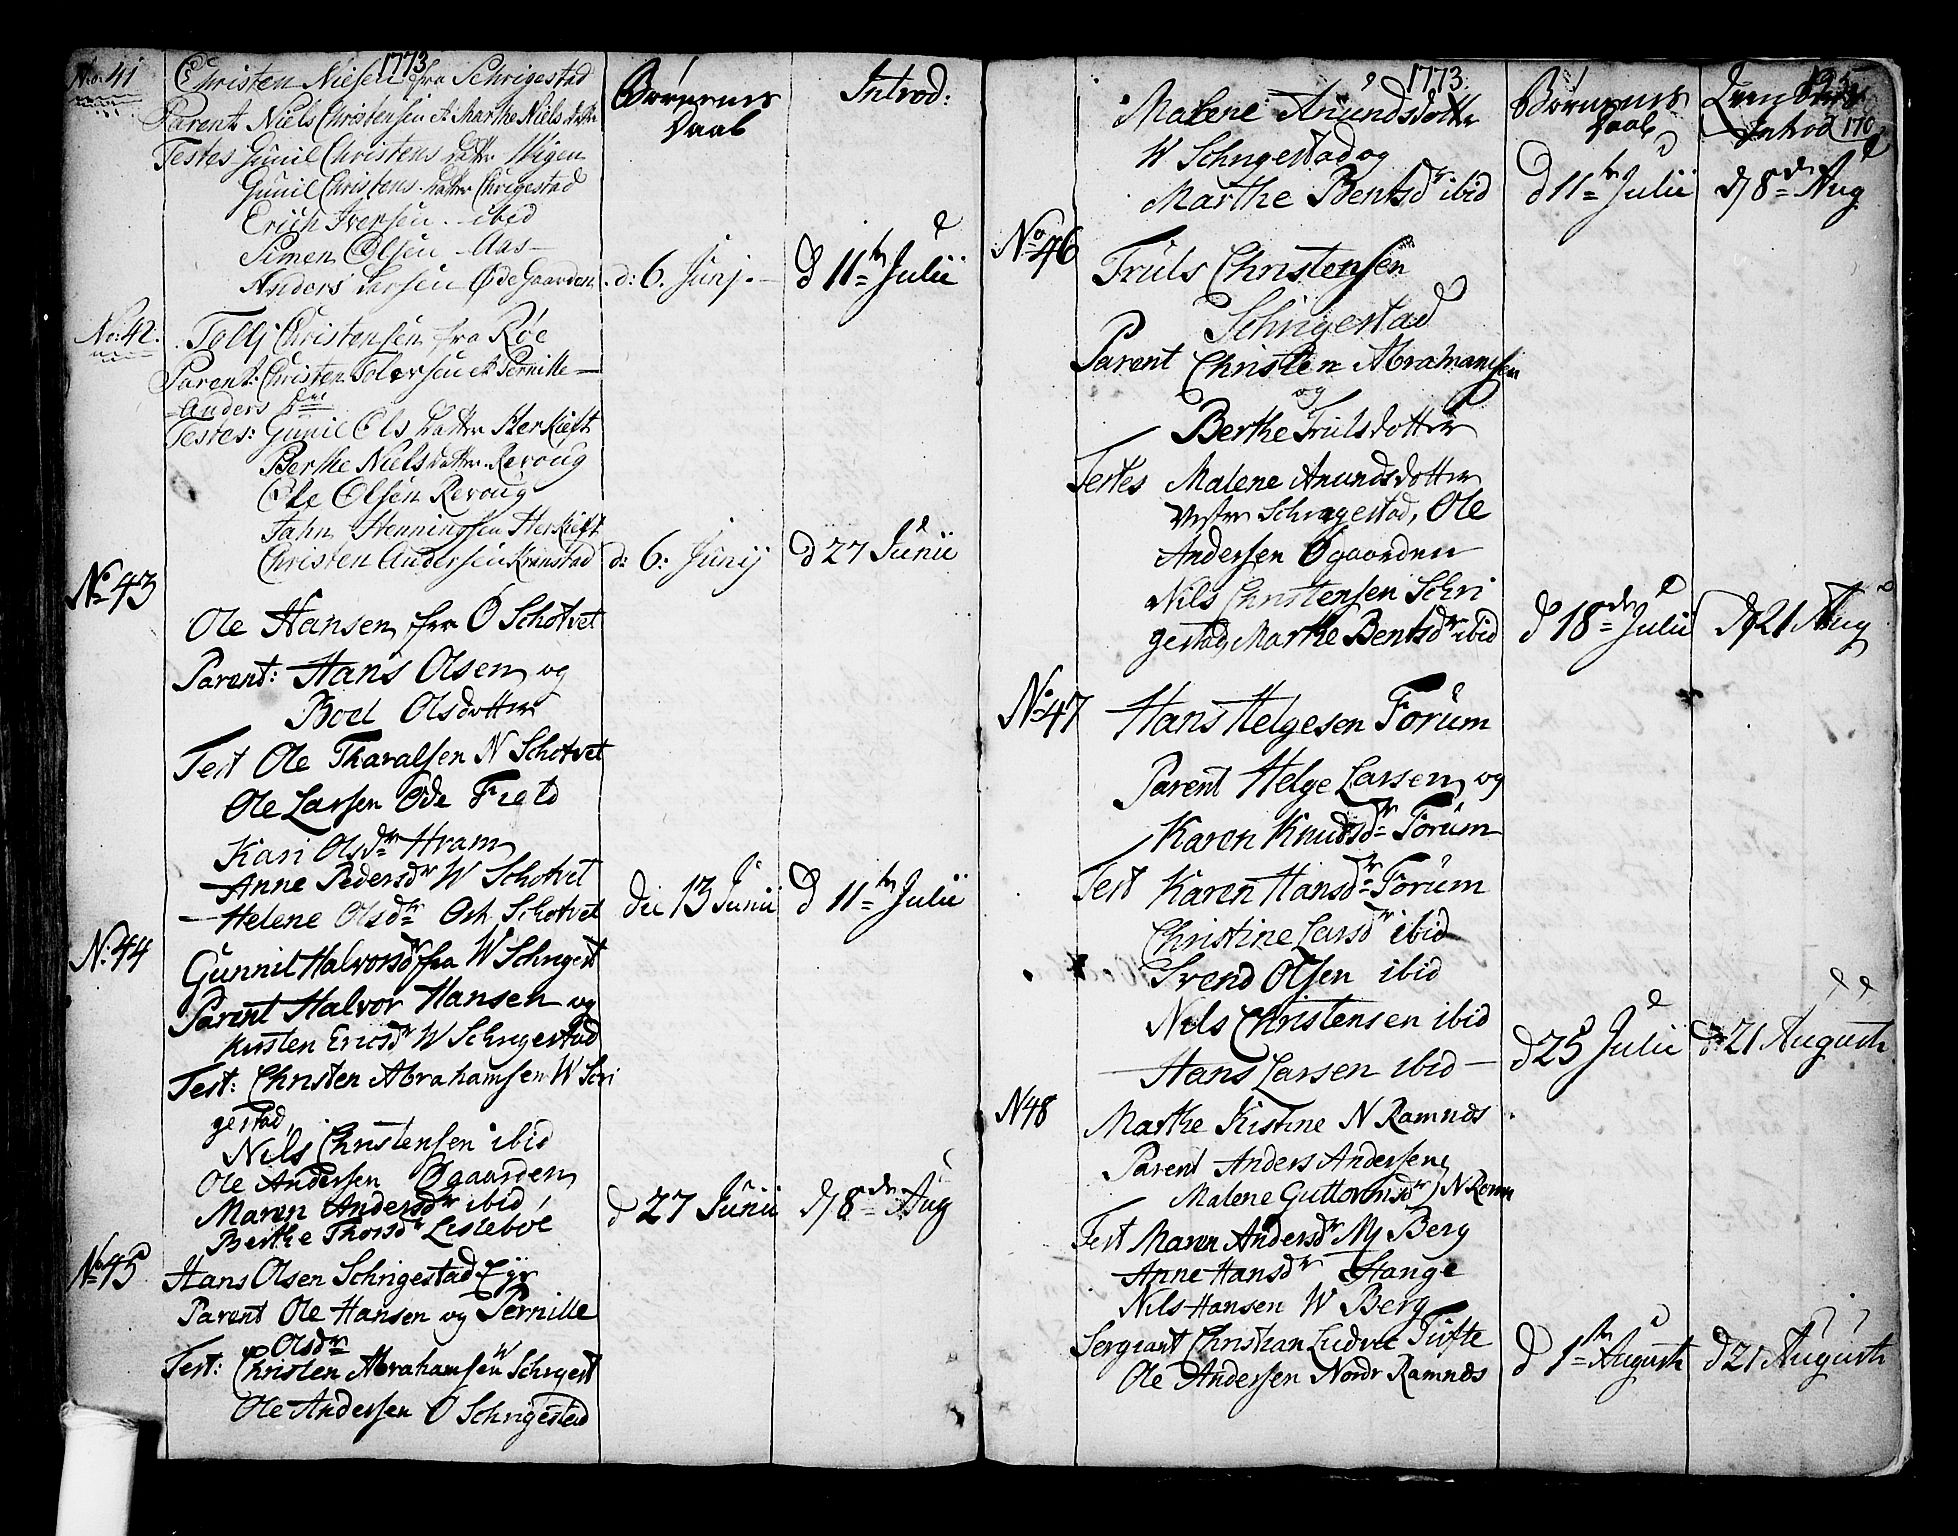 1773
No: 41 Christen Nielsen fra Schrigestad
Børnenes Daab
Introd:
Parent: Niels Christensen et Marthe Niels datter
Testes Gunil Christens datter Wigen
Gunil Christens datter Schrigestad
Erich Iversen - ibid
Simen Olsen - Aas -
Anders Larsen Øde Gaarden d: 6. Junj. - d 11te Julii
No: 42. Tollj Christensen fra Røe
Parent: Christen Tolersen et Pernille -
Anders dtr
Testes: Gunil Ols datter Herkieft
Berthe Niels datter Reroug
Ole Olsen Reroug
Jahn Henningsen Herkieft
Christen Andersen Kranstad d: 6: Junij d 27 Junii
No 43
Ole Hansen fra Ø Schotvet
Parent: Hans Olsen og
Boel Olsdotter
Test Ole Tharalsen N Schotvet
Ole Larsen Øde Field
Kari Olsdr Hram
Anne Pedersdr W Schotvet
Helene Olsdr Ost Schotvet die 13 Junii d 11te Julii
N: 44 Gunnil Halvorsdr fra W Schrigest
Parent Halvor Hansen og
Kirsten Ericsdr W Schrigestad
Test: Christen Abrahamsen W Schri
gestad,
Nils Christensen ibid
Ole Andersen Øgaarden
Maren Andersdr ibid
Berthe Thorsdr Lislebøe d 27 Junii d 8de Aug
No 45 Hans Olsen Schrigestad Eyr
Parent Ole Hansen og Pernille
Olsdr
Test: Christen Abrahamsen W Schrigest
Ole Andersen Ø Schrigestad
1773
195
170
Børnenes Daab
Introd
Malene Anundsdotter
W Schrigestad og
Marthe Bentsdr ibid d 11te Julii d 8de Aug
No 46 Truls Christensen
Schrigestad
Parent Christen Abrahamsen
og
Berthe Trulsdotter
Testes Malene Anundsdotter
Vester Schrigestad, Ole
Andersen Øgaarden
Nils Christensen Schri
gestad, Marthe Bentsdr ibid d 18de Julii d 21 Aug
No 47 Hans Helgesen Forum
Parent Helge Larsen og
Karen Knudsdr Forum
Test Karen Hansdr Forum
Christine Larsdr ibid
Svend Olsen ibid
Nils Christensen ibid
Hans Larsen ibid - d 25 Julii d 21 Augusti
N 48 Marthe Kistine N Ramnes
Parent Anders Andersen
Malene Guttormsdr N Ramn
Test Maren Andersdr Ny Berg
Anne Hansdr Stange
Nils Hansen W Berg
Sergiant Christian Ludvec Tufte
Ole Andersen Nordr Ramnes d 1te Augusti d 21 Augusti